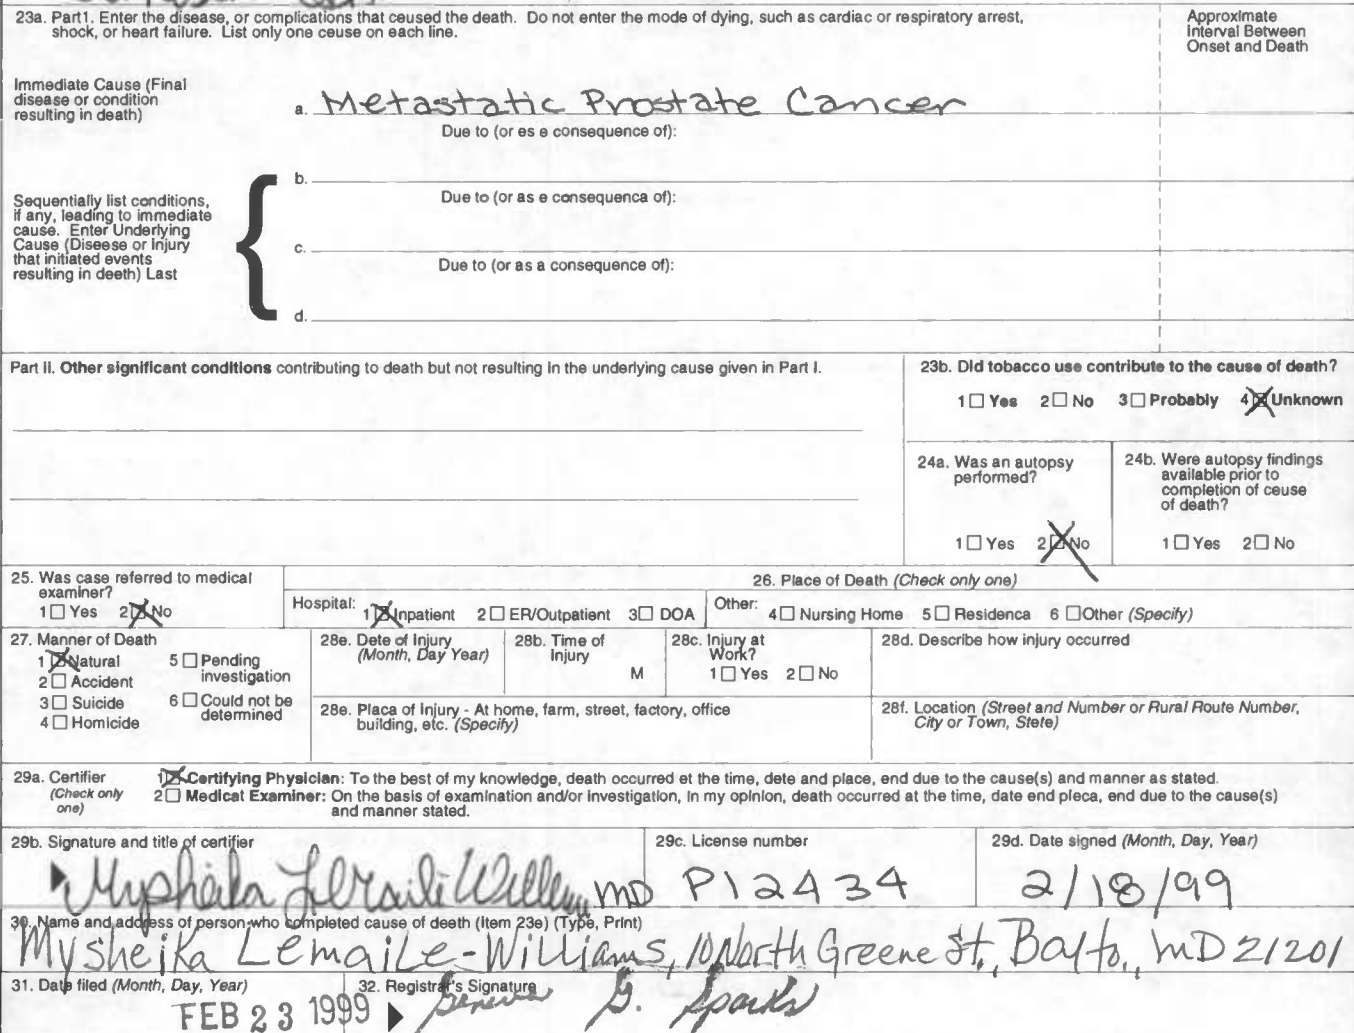 23a. Part1. Enter the disease, or complications that ceused the death. Do not enter the mode of dying, such as cardiac or respiratory arrest,
shock, or heart failure. List only one ceuse on each line.
Approximate
Interval Between
Onset and Death
Immediate Cause (Final
disease or condition
resulting in death)
a. Metastatic Prostate Cancer
Due to (or es e consequence of):
b.
Due to (or as e consequenca of):
Sequentially list conditions,
if any, leading to immediate
cause. Enter Underlying
Cause (Diseese or Injury
that initiated events
resulting in deeth) Last
c.
Due to (or as a consequence of):
d.
Part II. Other significant conditions contributing to death but not resulting in the underlying cause given in Part I.
23b. Did tobacco use contribute to the cause of death?
1 ☐ Yes 2 ☐ No 3 ☐ Probably 4 ☒ Unknown
24a. Was an autopsy
performed?
1 ☐ Yes 2 ☒ No
24b. Were autopsy findings
available prior to
completion of ceuse
of death?
1 ☐ Yes 2 ☐ No
25. Was case referred to medical
examiner?
1 ☐ Yes 2 ☒ No
26. Place of Death (Check only one)
Hospital: 1 ☒ Inpatient 2 ☐ ER/Outpatient 3 ☐ DOA Other: 4 ☐ Nursing Home 5 ☐ Residenca 6 ☐ Other (Specify)
27. Manner of Death
1 ☒ Natural
2 ☐ Accident
3 ☐ Suicide
4 ☐ Homicide
5 ☐ Pending
investigation
6 ☐ Could not be
determined
28e. Dete of Injury
(Month, Day Year)
28b. Time of
Injury
M
28c. Injury at
Work?
1 ☐ Yes 2 ☐ No
28d. Describe how injury occurred
28e. Placa of Injury - At home, farm, street, factory, office
building, etc. (Specify)
28f. Location (Street and Number or Rural Route Number,
City or Town, Stete)
29a. Certifier
(Check only
one)
1 ☒ Certifying Physician: To the best of my knowledge, death occurred et the time, dete and place, end due to the cause(s) and manner as stated.
2 ☐ Medicat Examiner: On the basis of examination and/or investigation, in my opinion, death occurred at the time, date end pleca, end due to the cause(s)
and manner stated.
29b. Signature and title of certifier
Mysheika MD
29c. License number
P12434
29d. Date signed (Month, Day, Year)
2/18/99
30. Name and address of person who completed cause of death (Item 23e) (Type, Print)
Mysheika LemaiLe-Williams, 10 North Greene St., Balto., MD 21201
31. Date filed (Month, Day, Year)
FEB 23 1999
32. Registrar's Signature
G. Sparks